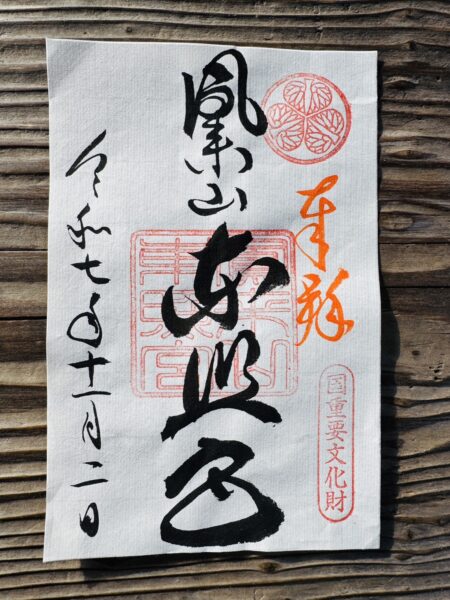 奉拝
国重要文化財
鳳来山東照宮
鳳来山
東照宮
令和七年十一月二日